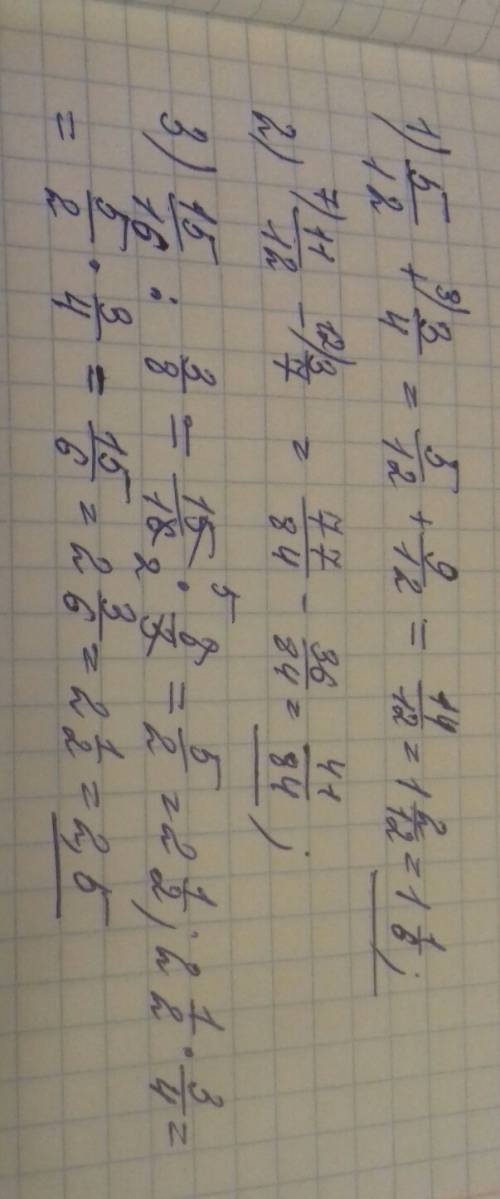 1) 5/12 + 3) 3/4 = 5/12 + 9/12 = 14/12 = 1 2/12 = 1 1/6;
2) 7) 11/12 - 12) 3/7 = 77/84 - 36/84 = 41/84;
3) 15/16 : 3/8 = 15/16 2 · 5 8/3 = 5/2 = 2 1/2; 2 1/2 · 3/4 =
= 5/2 · 3/4 = 15/6 = 2 3/6 = 2 1/2 = 2,5